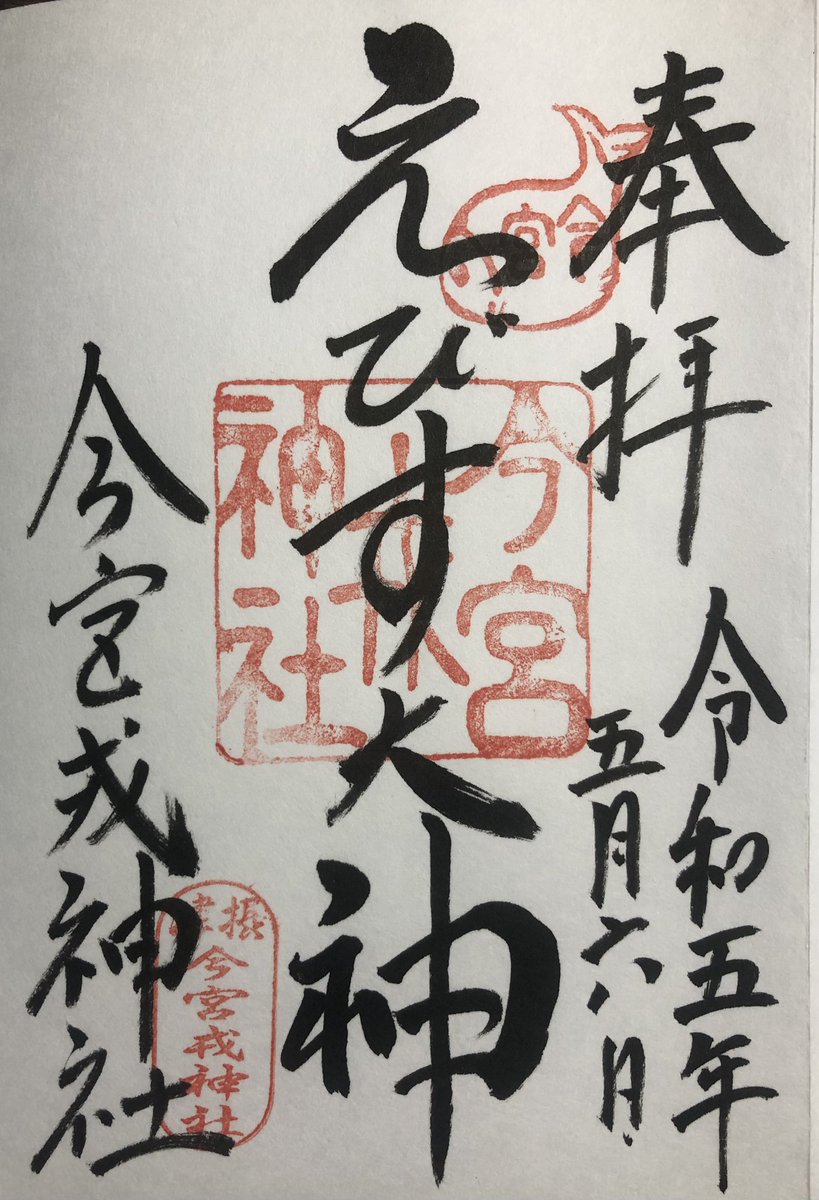 奉拝
令和五年
五月六日
えびす大神
今宮戎神社
今宮
戎
神社
摂津
今宮戎神社